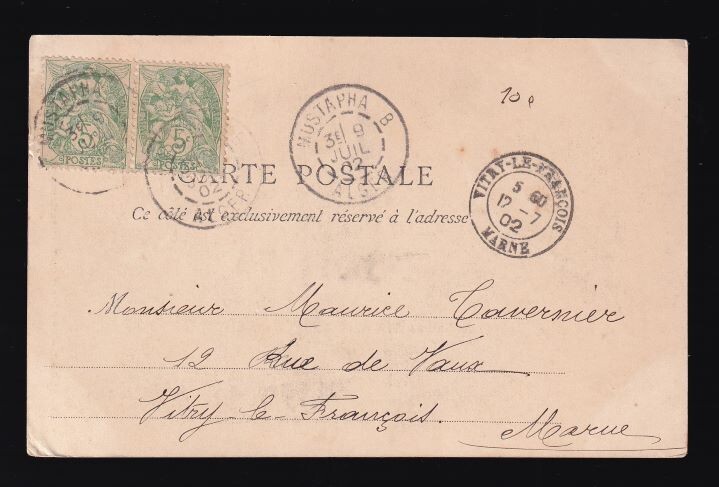 10 e
5
POSTES
5
POSTES
MUSTAPHA
ALGER
02
MUSTAPHA B
3E 9
JUIL
02
ALGER
CARTE POSTALE
Ce côté est exclusivement réservé à l'adresse
VITRY-LE-FRANÇOIS
5 60
12 - 7
02
MARNE
Monsieur Maurice Tavernier
12 Rue de Vaux
Vitry-le-François.
Marne